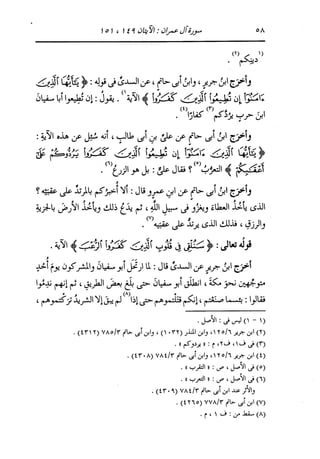 ٥٨ سورة آل عمران : الآيتان ١٤٩ ، ١٥١
دينِكم(١) (٢) .
وأخرَج ابنُ جريرٍ ، وابنُ أبى حاتمٍ ، عن السدىِّ فى قوله : ﴿ يَٰٓأَيُّهَا ٱلَّذِينَ
ءَامَنُوٓا۟ إِن تُطِيعُوا۟ ٱلَّذِينَ كَفَرُوا۟ ﴾ الآية(١) . يقولُ : إن تُطيعوا أبا سفيانَ
ابنَ حربٍ يرُدَّكم(٣) كفارًا(٤) .
وأخرَج ابنُ أبى حاتمٍ عن علىِّ بنِ أبى طالبٍ ، أنه سُئِل عن هذه الآيةِ :
﴿ يَٰٓأَيُّهَا ٱلَّذِينَ ءَامَنُوٓا۟ إِن تُطِيعُوا۟ ٱلَّذِينَ كَفَرُوا۟ يَرُدُّوكُمْ عَلَىٰٓ
أَعْقَٰبِكُمْ ﴾ التعرُّبُ(٥) ؟ فقال علىٌّ : بل هو الزرعُ(٦) .
وأخرَج ابنُ أبى حاتمٍ عن ابنِ عمرٍو قال : ألا أُخبِرُكم بالمرتدِّ على عقبيه ؟
الذى يأخُذُ العطاءَ ويغزُو فى سبيلِ اللَّهِ ، ثم يدَعُ ذلك ويأخُذُ الأرضَ بالجزيةِ
والرزقِ ، فذلك الذى يرتدُّ على عقبيه(٧) .
قولُه تعالى : ﴿ سَنُلْقِى فِى قُلُوبِ ٱلَّذِينَ كَفَرُوا۟ ٱلرُّعْبَ ﴾ الآية .
أخرَج ابنُ جريرٍ عن السدىِّ قال : لما ارتحَل أبو سفيانَ والمشركون يومَ أُحدٍ
متوجِّهين نحوَ مكةَ ، انطلَق أبو سفيانَ حتى بلَغ بعضَ الطريقِ ، ثم إنهم ندِموا
فقالوا : بئسما صنَعتم ، إنكم قتَلتموهم حتى إذا(٨) لم يبقَ إلا الشريدُ ترَكتموهم ،
(١ - ١) ليس فى : الأصل .
(٢) ابن جرير ١٢٥/٦ ، وابن المنذر (١٠٣٢) ، وابن أبى حاتم ٧٨٥/٣ (٤٣١٢) .
(٣) فى ف١ ، ف٢ ، م : « يردوكم » .
(٤) ابن جرير ١٢٥/٦ ، وابن أبى حاتم ٧٨٤/٣ (٤٣٠٨) .
(٥) فى الأصل ، ص : « التقرب » .
(٦) فى الأصل ، ص : « التعرب » .
والأثر عند ابن أبى حاتم ٧٨٤/٣ (٤٣٠٩) .
(٧) ابن أبى حاتم ٧٧٨/٣ (٤٢٦٥) .
(٨) سقط من : ف ١ ، م .